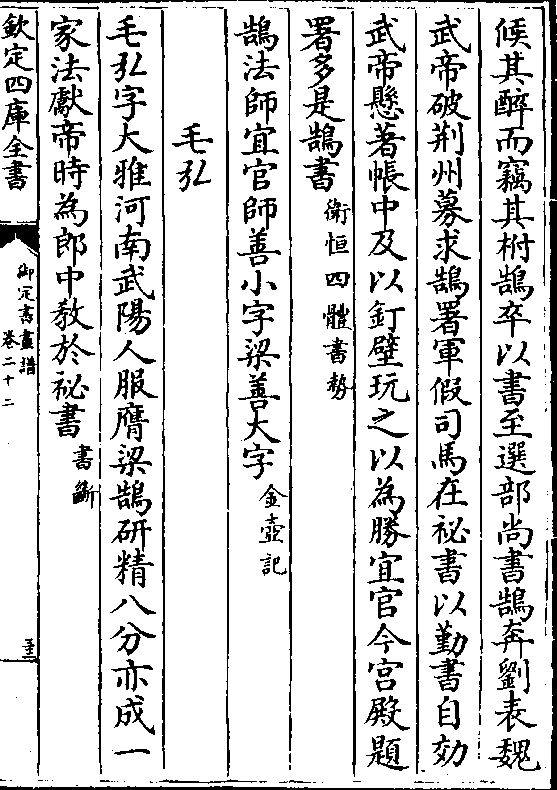 候其醉而竊其柎鵠卒以書至選部尚書鵠奔劉表魏
武帝破荆州募求鵠署軍假司馬在祕書以勤書自効
武帝懸著帳中及以釘壁玩之以為勝宜官今宫殿題
署多是鵠書衛恒四體書勢
鵠法師宜官師善小字梁善大字金壺記
毛弘
毛弘字大雅河南武陽人服膺梁鵠研精八分亦成一
家法獻帝時為郎中教於祕書書斷
欽定四庫全書
御定書畫譜
卷二十二